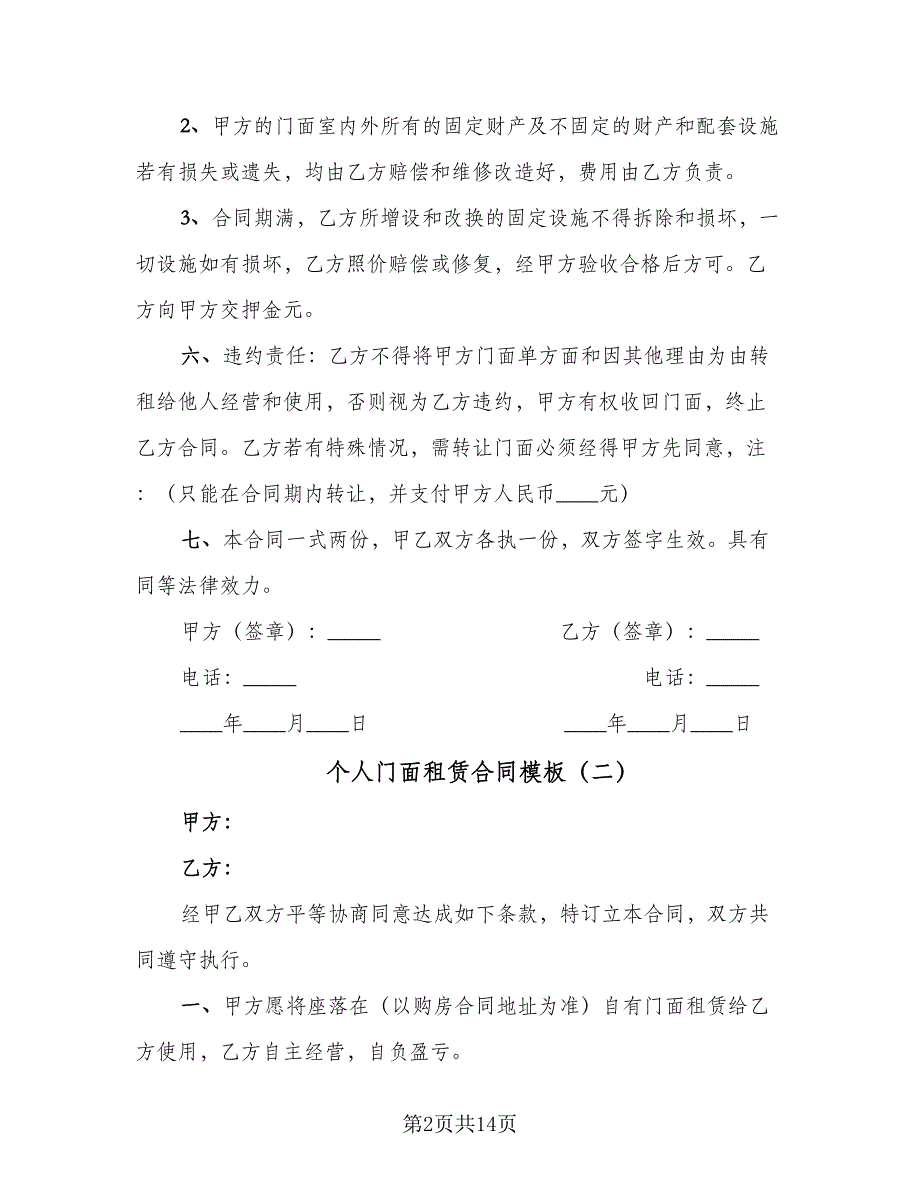 2、甲方的门面室内外所有的固定财产及不固定的财产和配套设施
若有损失或遗失，均由乙方赔偿和维修改造好，费用由乙方负责。
3、合同期满，乙方所增设和改换的固定设施不得拆除和损坏，一
切设施如有损坏，乙方照价赔偿或修复，经甲方验收合格后方可。乙
方向甲方交押金元。
六、违约责任：乙方不得将甲方门面单方面和因其他理由为由转
租给他人经营和使用，否则视为乙方违约，甲方有权收回门面，终止
乙方合同。乙方若有特殊情况，需转让门面必须经得甲方先同意，注
：（只能在合同期内转让，并支付甲方人民币____元）
七、本合同一式两份，甲乙双方各执一份，双方签字生效。具有
同等法律效力。
甲方（签章）：_____ 乙方（签章）：_____
电话：_____ 电话：_____
____年____月____日 ____年____月____日
个人门面租赁合同模板（二）
甲方：
乙方：
经甲乙双方平等协商同意达成如下条款，特订立本合同，双方共
同遵守执行。
一、甲方愿将座落在（以购房合同地址为准）自有门面租赁给乙
方使用，乙方自主经营，自负盈亏。
第2页共14页